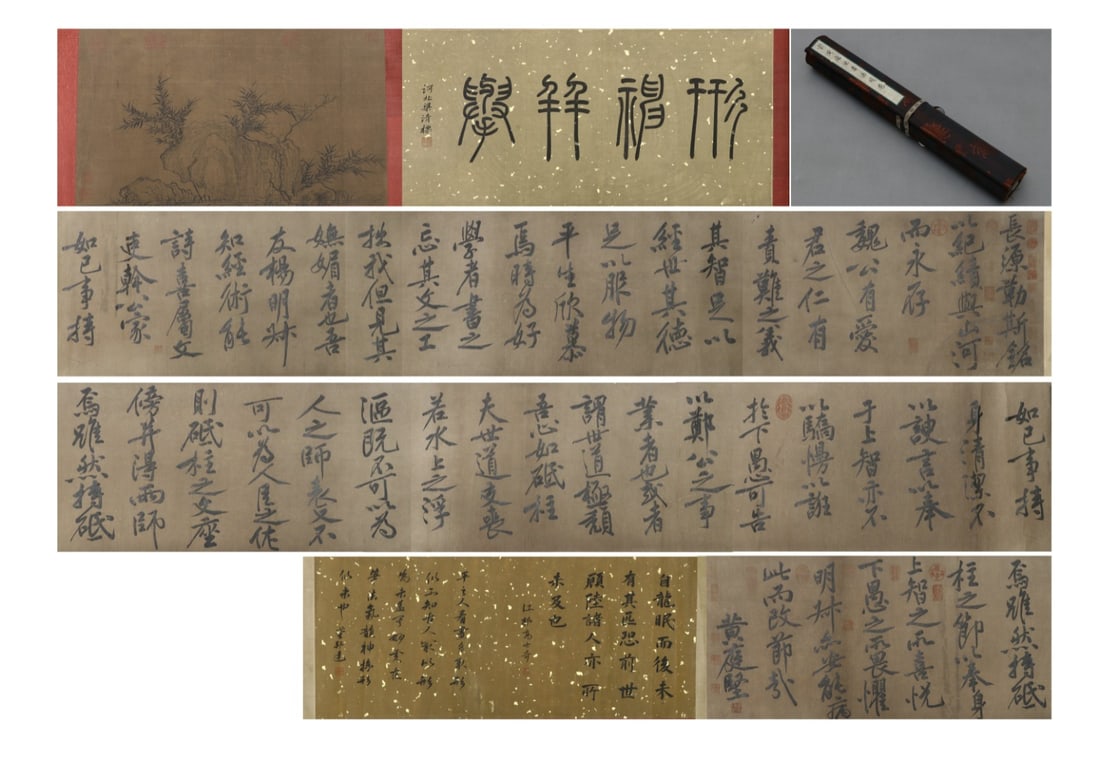 形神并舉
河北梁清標
長源勒斯銘
以紀績與山河
而永存
魏公有愛
君之仁有
責難之義
其智足以
經世其德
足以服物
平生欣慕
焉時為好
學者書之
忘其文之工
拙我但見其
嫵媚者也吾
友楊明叔
知經術能
詩喜屬文
吏幹公家
如己事持
如己事持
身清潔不
以諛言以奉
于上智亦不
以驕慢以誑
於下愚可告
以鄭公之事
業者也或者
謂世道極頹
吾心如砥柱
夫世道交喪
若水上之浮
漚既不可以為
人之師表又不
可以為人臣之佐
則砥柱之文座
傍并得兩師
焉雖然持砥
焉雖然持砥
柱之節以奉身
上智之所喜悅
下愚之所畏懼
明叔亦安能病
此而改節哉
黃庭堅
自龍眠而後未
有其匹恐前世
顧陸諸人亦所
未及也
江邨高士奇
人看畫取形
似不知古人以形